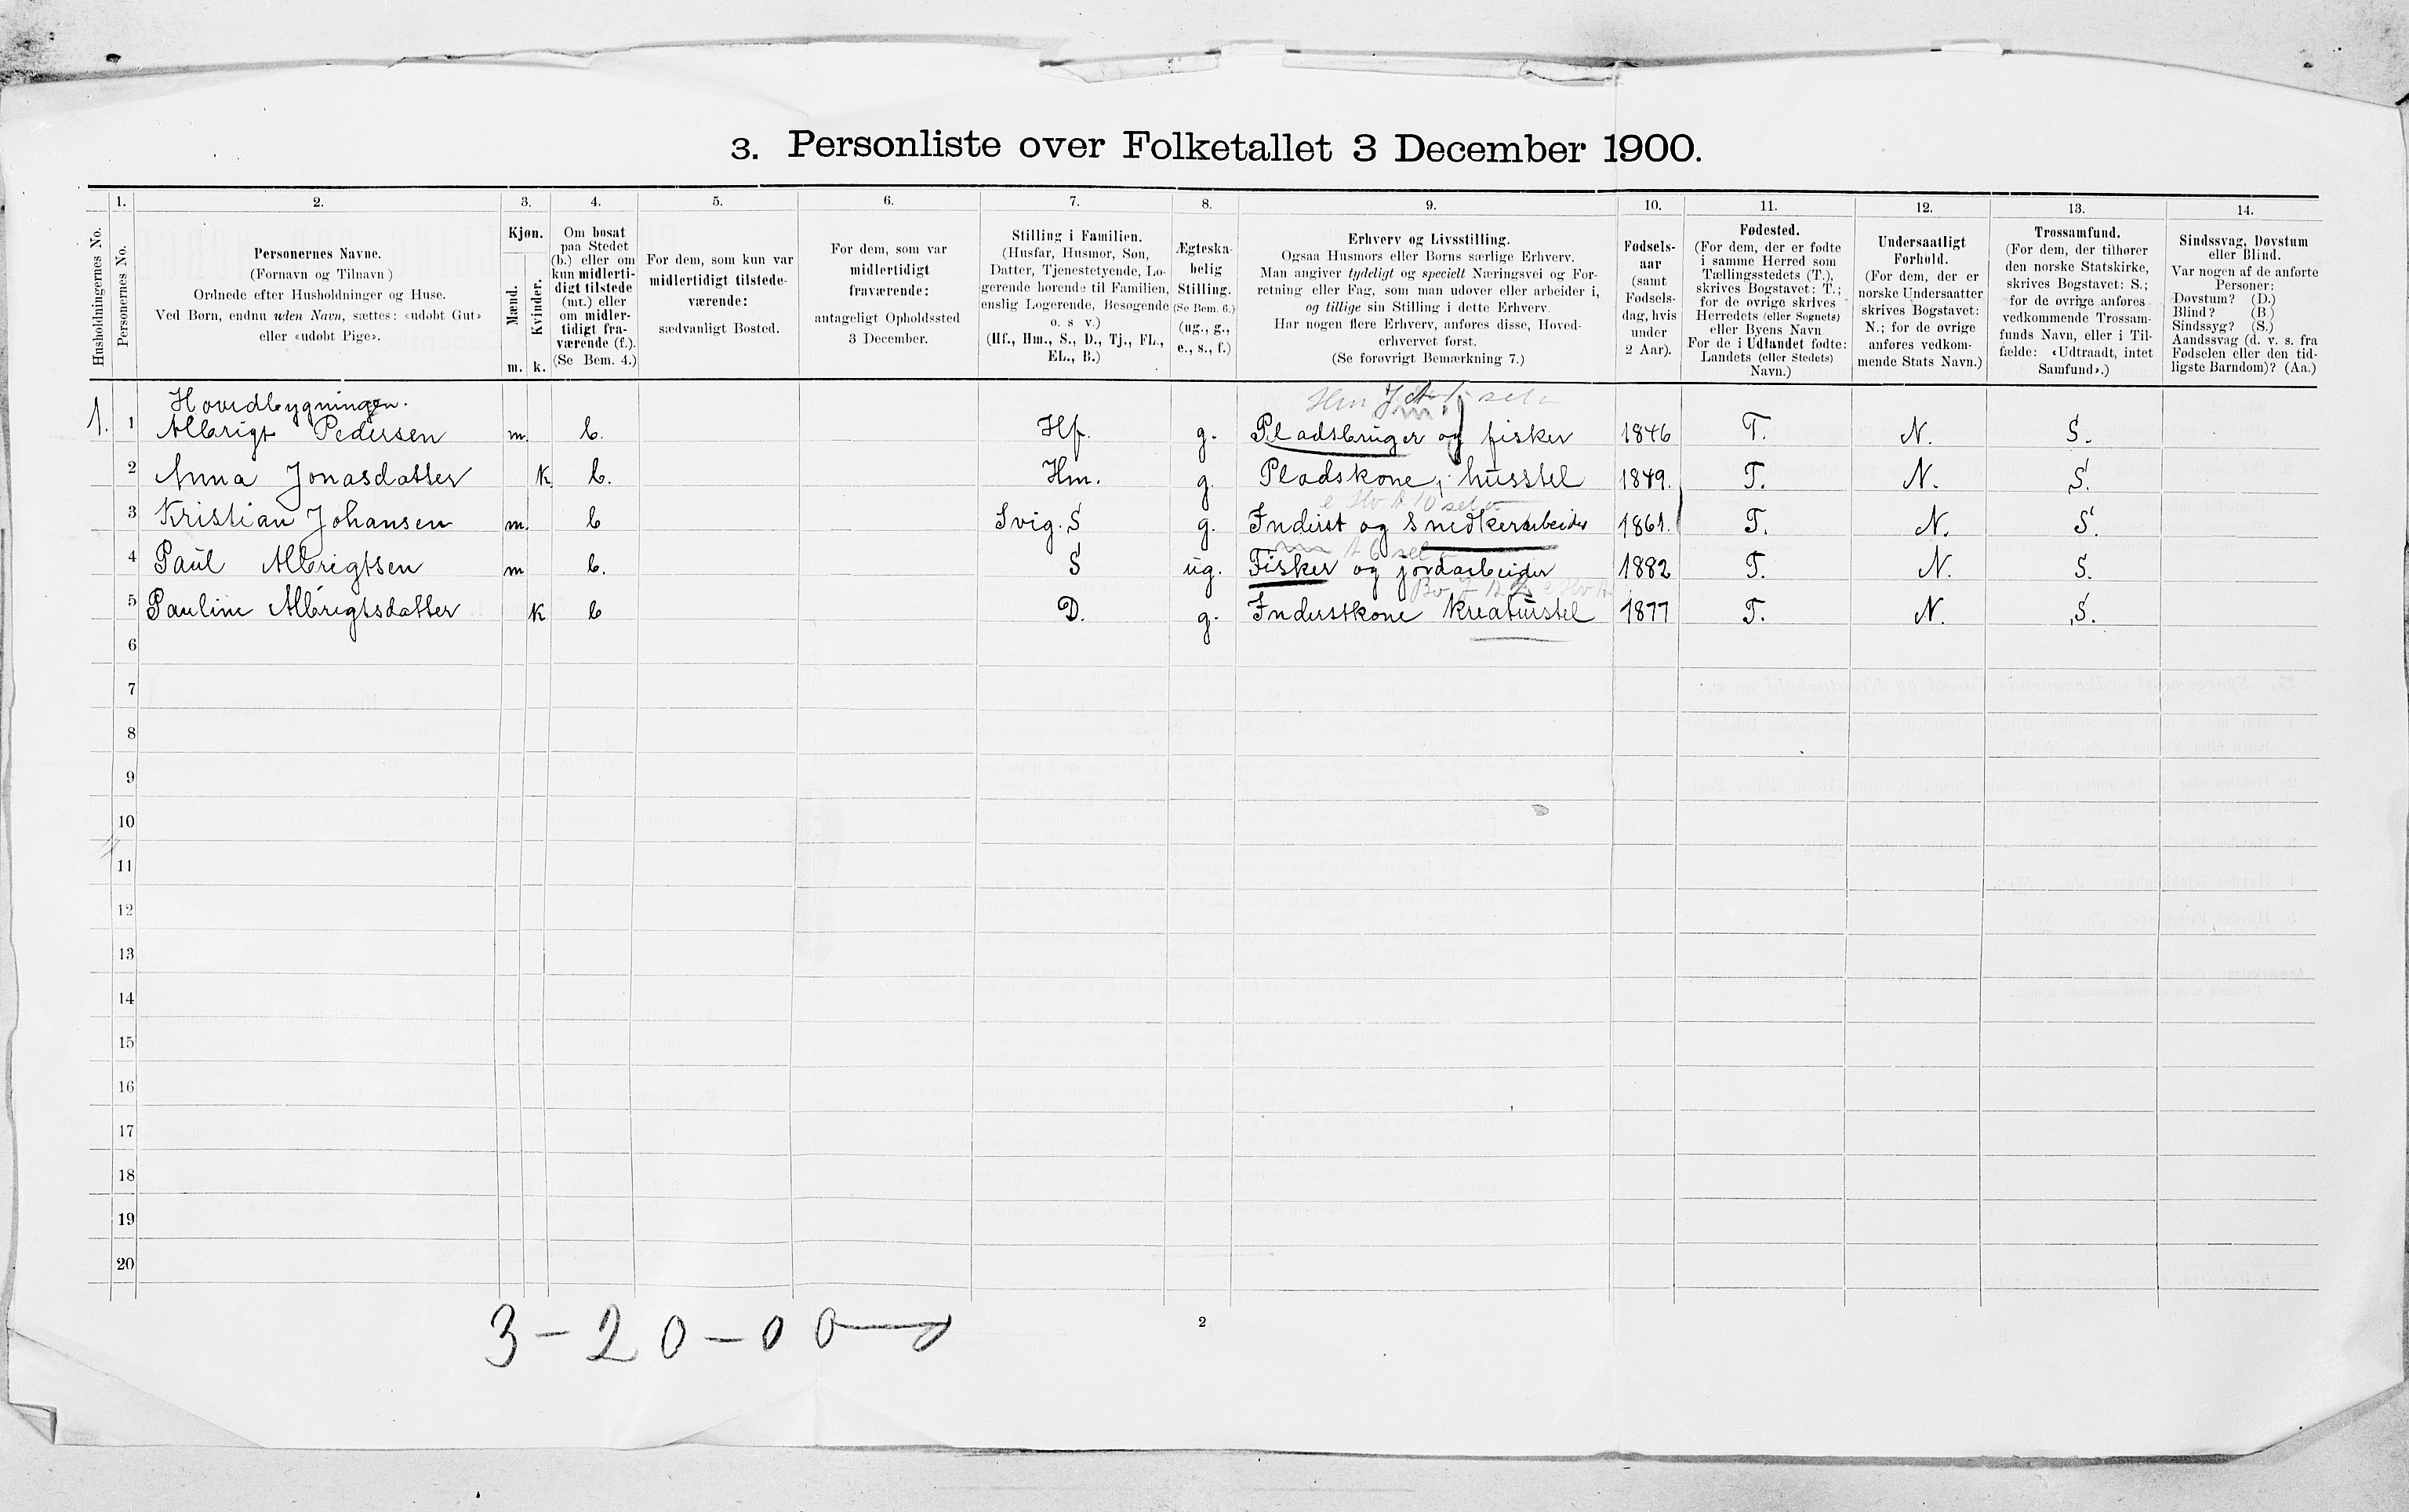 3. Personliste over Folketallet 3 December 1900.
1. 2. 3. 4. 5. 6. 7. 8. 9. 10. 11. 12. 13. 14.
Husholdningernes No.
Personernes No.
Personernes Navne.
(Fornavn og Tilnavn)
Ordnede efter Husholdninger og Huse.
Ved Børn, endnu uden Navn, sættes: «udøbt Gut»
eller «udøbt Pige».
Kjøn.
Mænd.
Kvinder.
m. k.
Om bosat
paa Stedet
(b.) eller om
kun midlerti-
digt tilstede
(mt.) eller
om midler-
tidigt fra-
værende (f.).
(Se Bem. 4.)
For dem, som kun var
midlertidigt tilstede-
værende:
sædvanligt Bosted.
For dem, som var
midlertidigt
fraværende:
antageligt Opholdssted
3 December.
Stilling i Familien.
(Husfar, Husmor, Søn,
Datter, Tjenestetyende, Lo-
gerende hørende til Familien,
enslig Logerende, Besøgende
o. s v.)
(Hf., Hm., S., D., Tj., FL.,
EL., B.)
Ægteska-
belig
Stilling.
(Se Bem. 6.)
(ug., g.,
e., s., f.)
Erhverv og Livsstilling.
Ogsaa Husmors eller Børns særlige Erhverv.
Man angiver tydeligt og specielt Næringsvei og For-
retning eller Fag, som man udøver eller arbeider i,
og tillige sin Stilling i dette Erhverv.
Har nogen flere Erhverv, anføres disse, Hoved-
erhvervet først.
(Se forøvrigt Bemærkning 7.)
Fødsels-
aar
(samt
Fødsels-
dag, hvis
under
2 Aar).
Fødested.
(For dem, der er fødte
i samme Herred som
Tællingsstedets (T.),
skrives Bogstavet: T.;
for de øvrige skrives
Herredets (eller Sognets)
eller Byens Navn
For de i Udlandet fødte:
Landets (eller Stedets)
Navn.)
Undersaatligt
Forhold.
(For dem, der er
norske Undersaatter
skrives Bogstavet:
N.; for de øvrige
anføres vedkom-
mende Stats Navn.)
Trossamfund.
(For dem, der tilhører
den norske Statskirke,
skrives Bogstavet: S.;
for de øvrige anføres
vedkommende Trossam-
funds Navn, eller i Til-
fælde: «Udtraadt, intet
Samfund».)
Sindssvag, Døvstum
eller Blind.
Var nogen af de anførte
Personer:
Døvstum? (D.)
Blind? (B.)
Sindssyg? (S.)
Aandssvag (d. v. s. fra
Fødselen eller den tid-
ligste Barndom)? (Aa.)
Hovedbygningen.
1. 1 Albrigt Pedersen m. b. Hf. g. Pladsbruger og fisker 1846 T. N. S.
2 Anna Jonasdatter k b. Hm. g. Pladskone, husstel 1849. T. N. S.
3 Kristian Johansen m. b Svig. S g. Inderst og Snedkerarbeider 1861. T. N. S.
4 Paul Albrigtsen m b. S ug. Fisker og jordarbeider 1882 T. N. S.
5 Pauline Albrigtsdatter k b D. g. Inderstkone kreaturstel 1877 T. N. S.
6
7
8
9
10
11
12
13
14
15
16
17
18
19
20
3-20-00
2